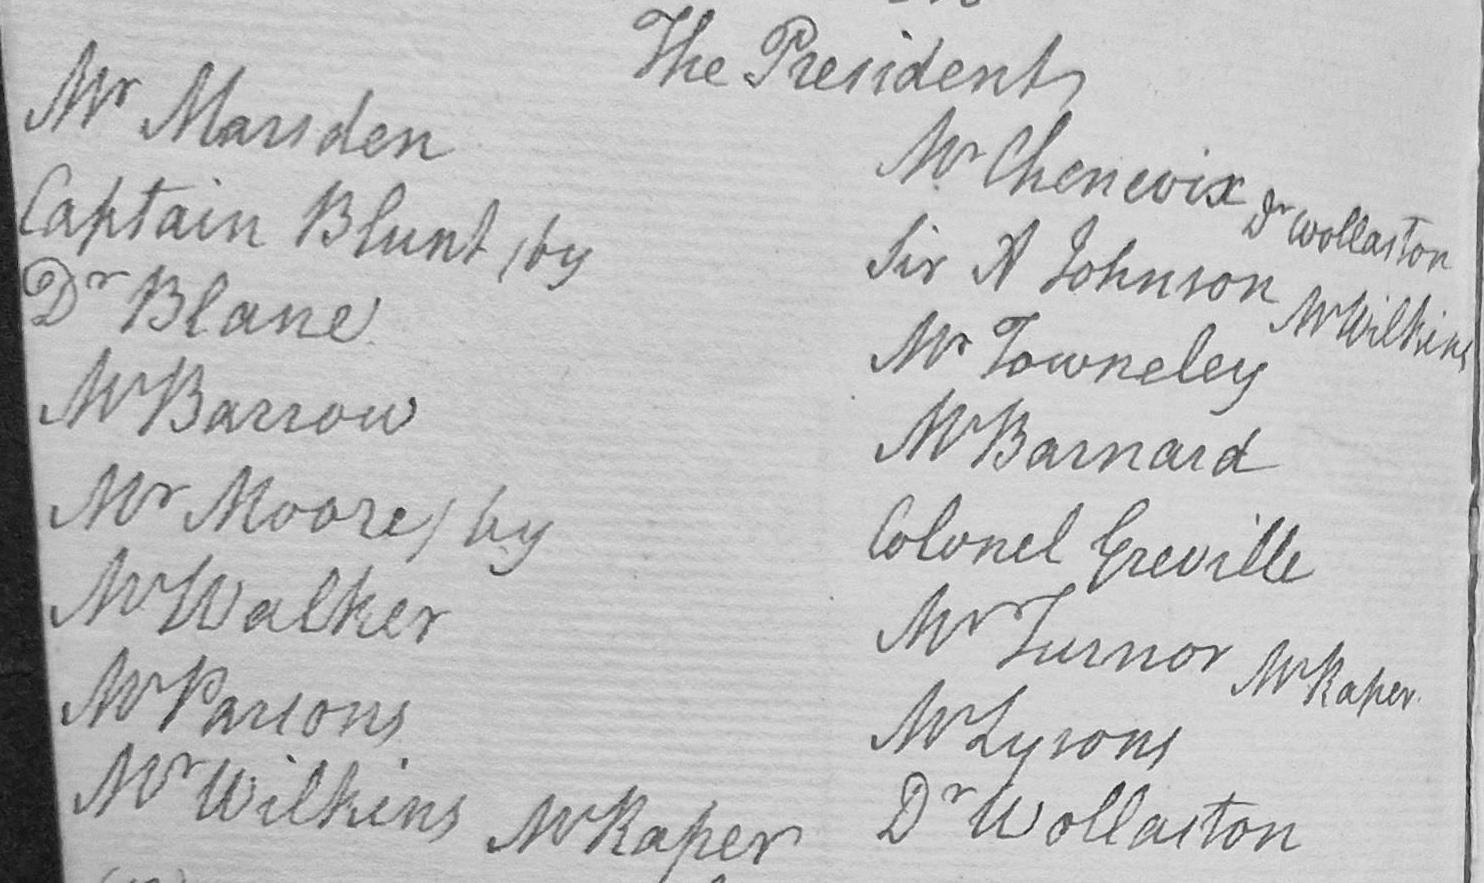 The President
Mr Marsden
Captain Blunt / by
Dr Blane
Mr Barrow
Mr Moore / by
Mr Walker
Mr Parsons
Mr Wilkins Mr Raper
Mr Chenevix Dr Wollaston
Sir A Johnson Mr Wilkins
Mr Towneley
Mr Barnard
Colonel Greville
Mr Turnor Mr Raper
Mr Lysons
Dr Wollaston